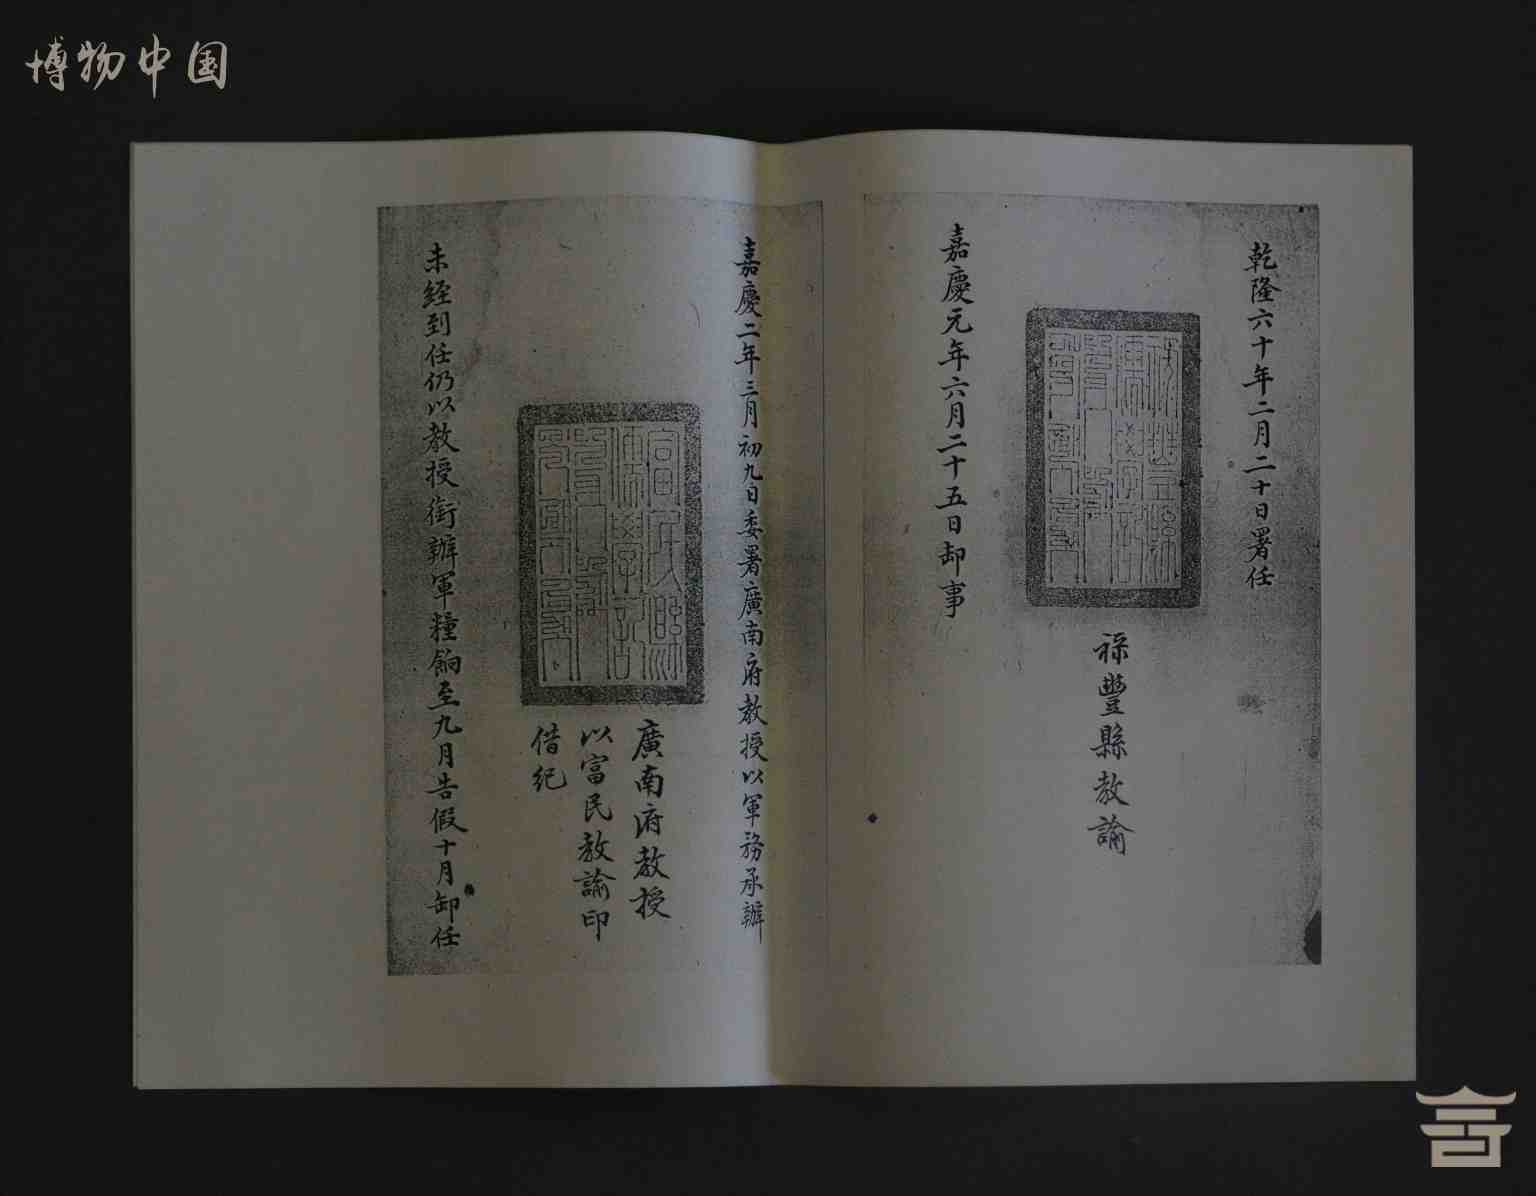 博物中国
乾隆六十年二月二十日署任
祿豐縣教諭
嘉慶元年六月二十五日卸事
嘉慶二年三月初九日委署廣南府教授以軍務承辦
廣南府教授
以富民教諭印
借紀
未經到任仍以教授銜辦軍糧餉至九月告假十月卸任